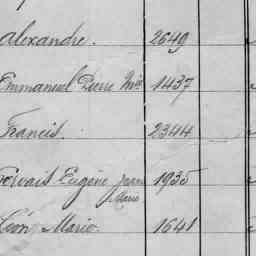 Alexandre. 2649
Emmanuel Pierre Mie 1437
Francis. 2344
Gervais Eugène Jean 1935
Marie
Léon Marie. 1641